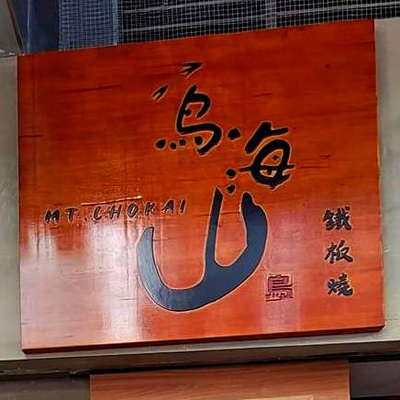 鳥海山
MT.CHOKAI
鐵板燒
鳥